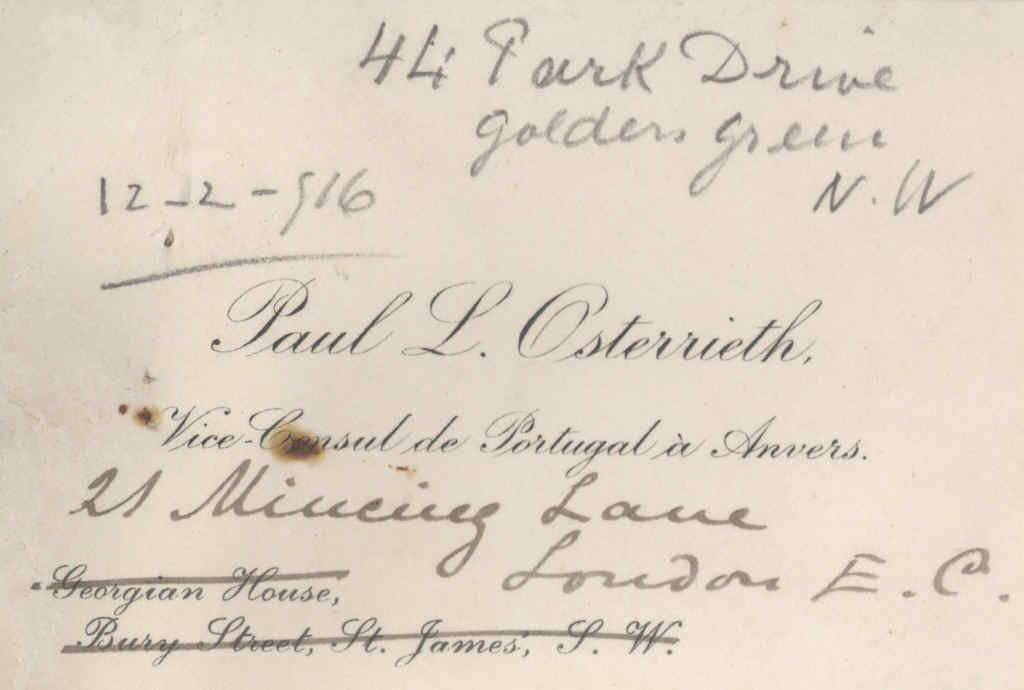 44 Park Drive
Golders Green
N.W
12-2-916
Paul L. Osterrieth,
Vice-Consul de Portugal à Anvers.
21 Mincing Lane
London E.C.
Georgian House,
Bury Street, St. James', S. W.